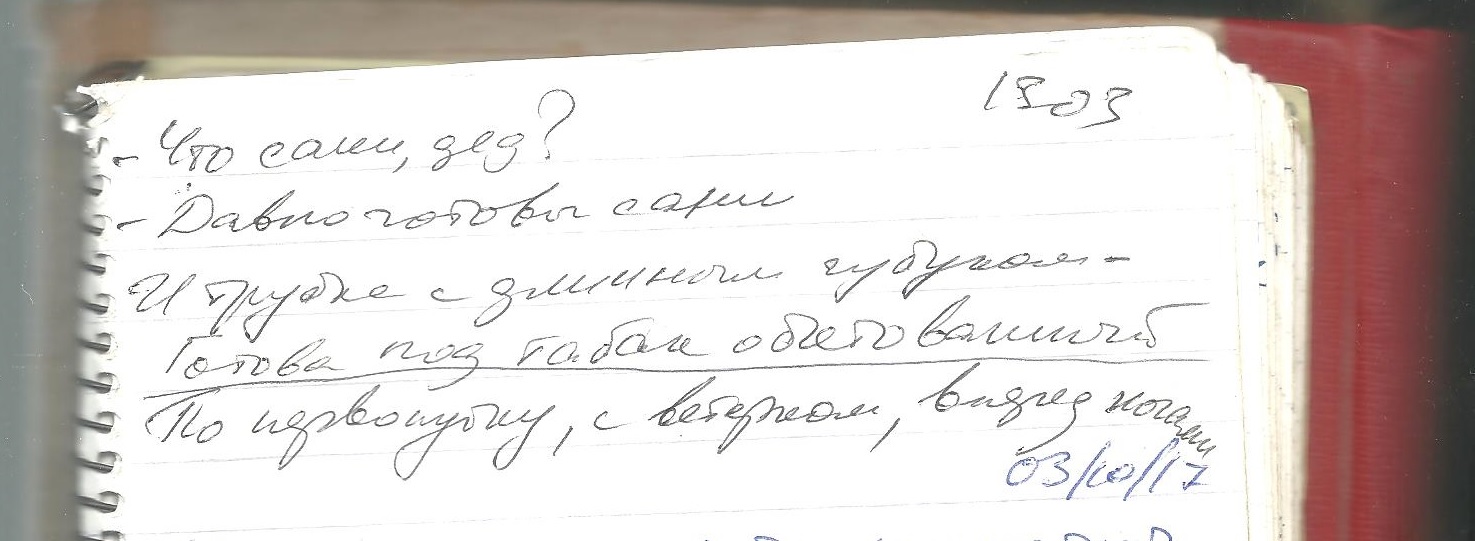 1503
- Что сани, дед?
- Давно готовы сани
И трубка с длинным чубуком -
Готова под табак обетованный
По первопутку, с ветерком, вперед ногами
03/10/17